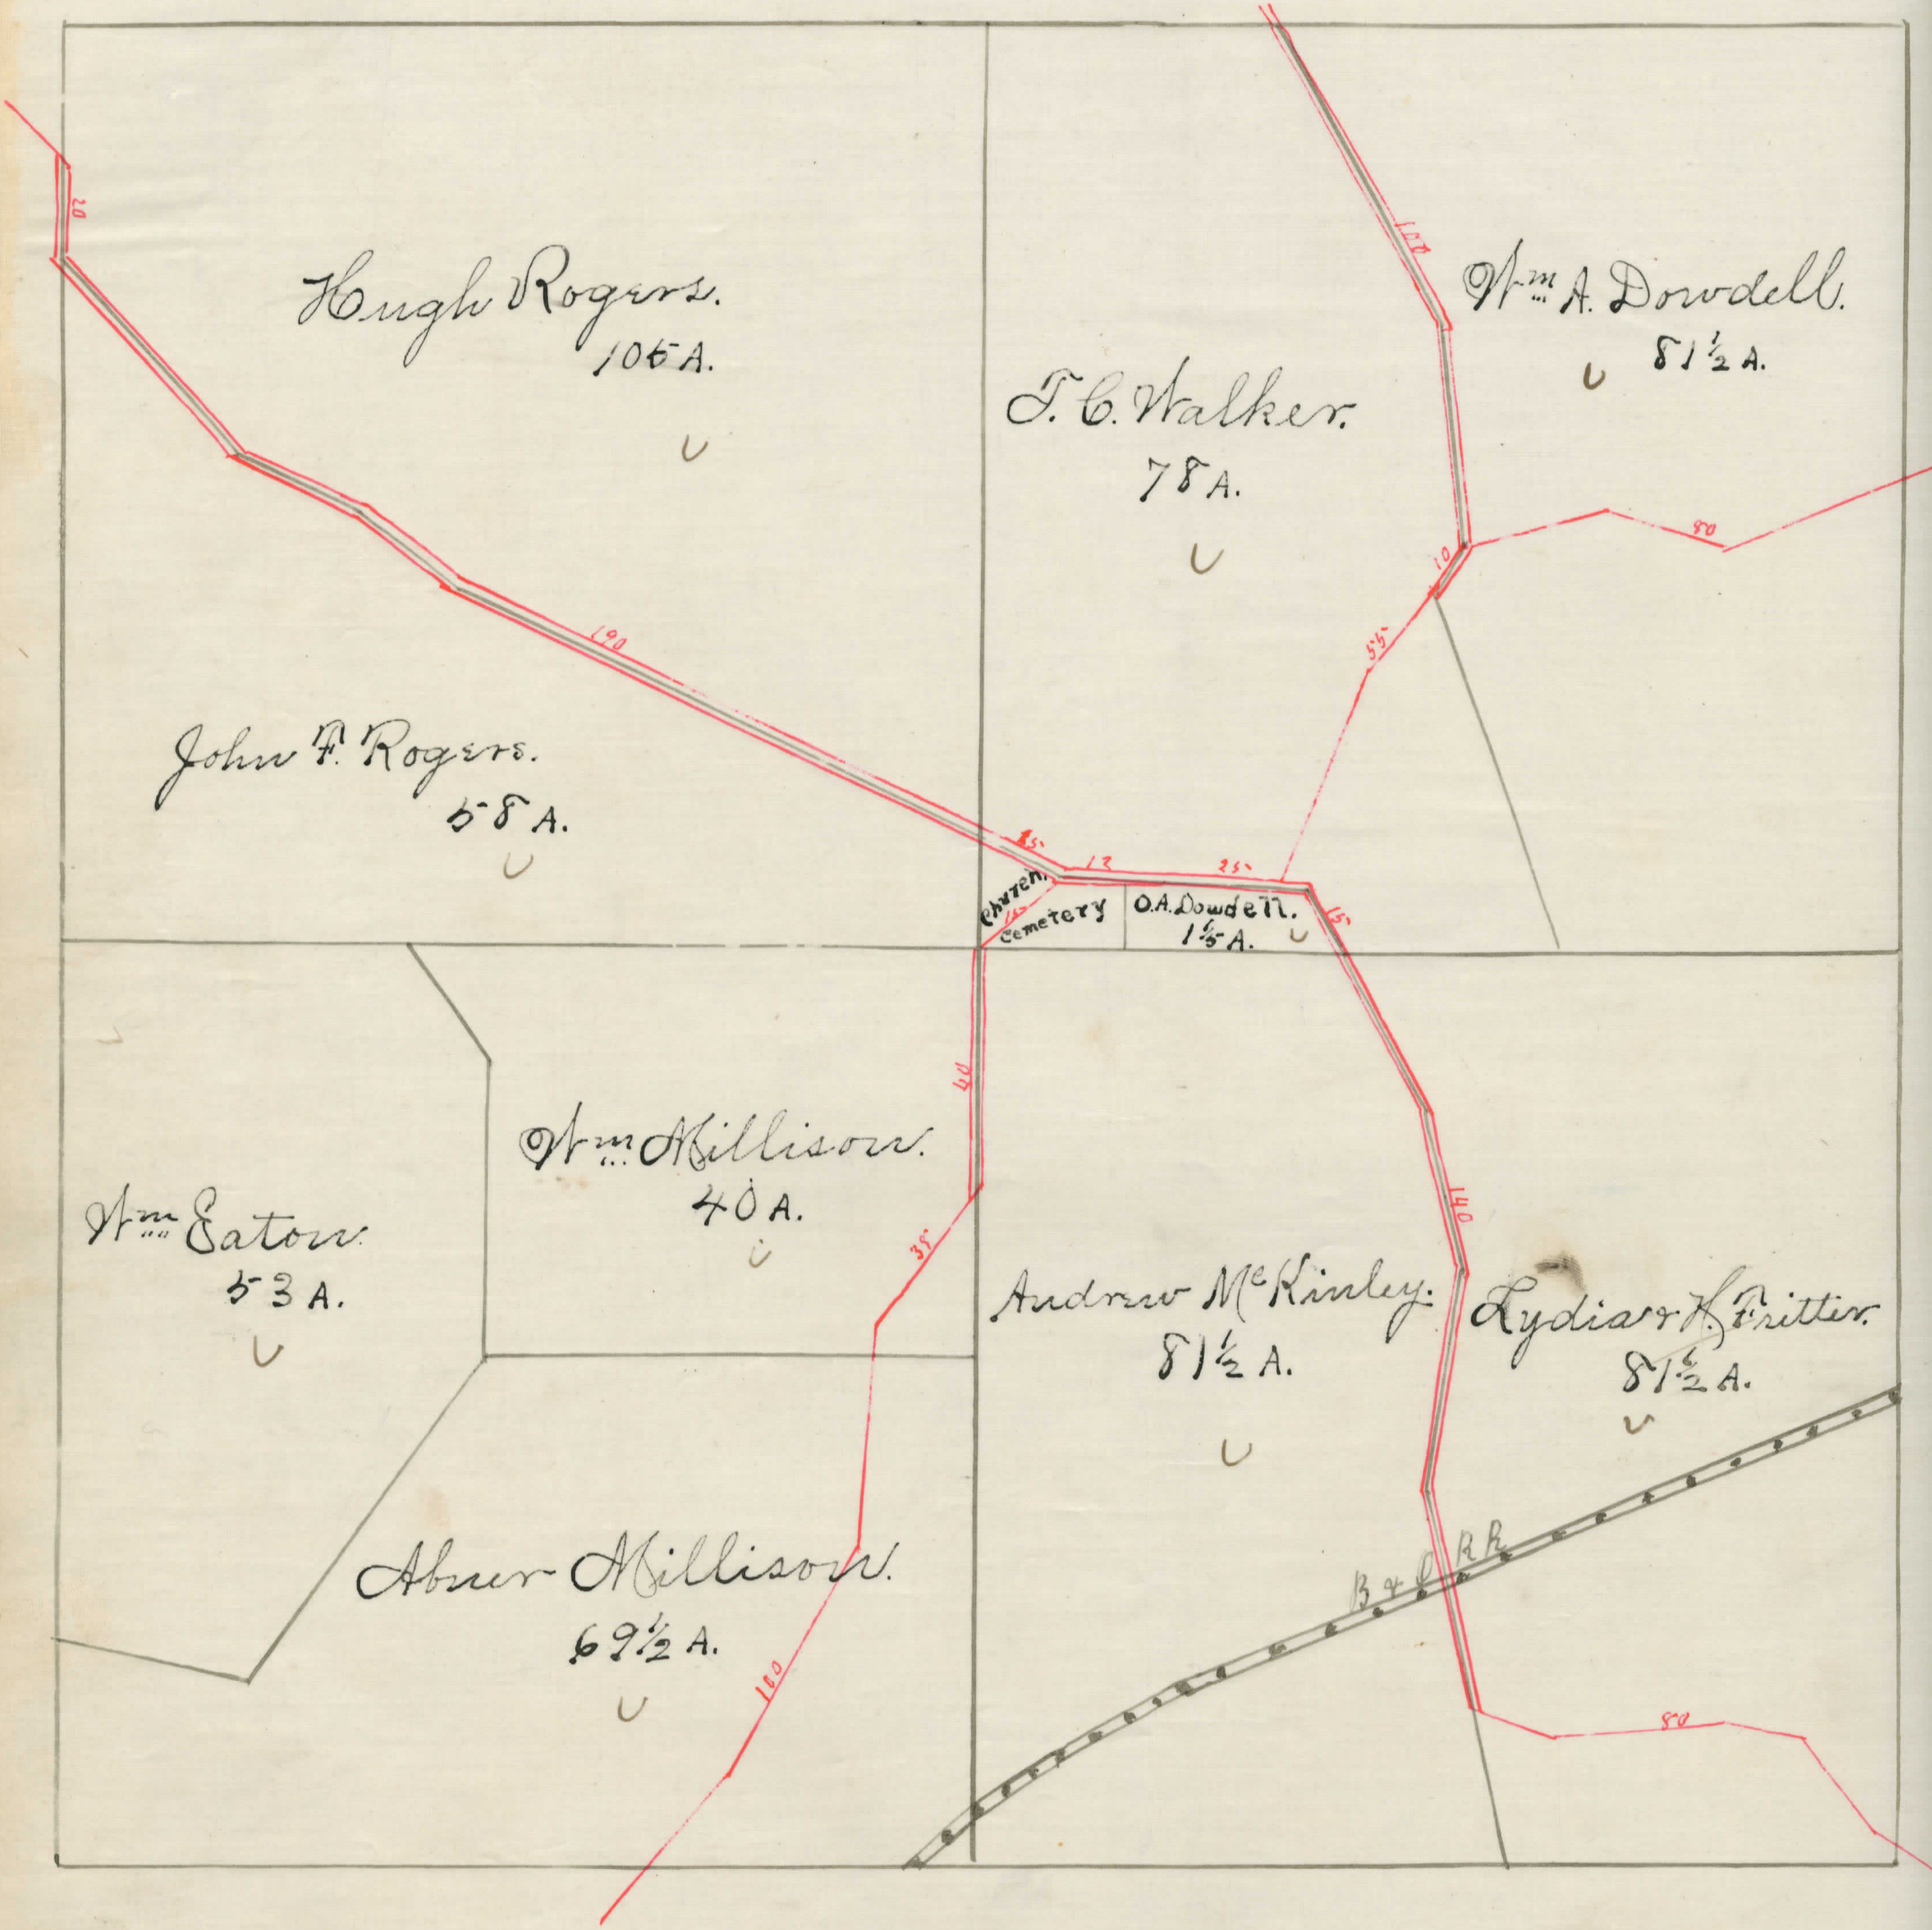 20
Hugh Rogers.
105 A.
100
Wm A. Dowdell.
81 1/2 A.
T. C. Walker.
78 A.
80
10
55
190
John F. Rogers.
58 A.
12
25
Church
Cemetery
O.A. Dowdell.
A.
15
40
Wm Millison.
40 A.
35
Wm Eaton
53 A.
140
Andrew McKinley.
81 1/2 A.
Lydia & H. Fritter.
81 1/2 A.
B & O RR
Abner Millison.
69 1/2 A.
100
80